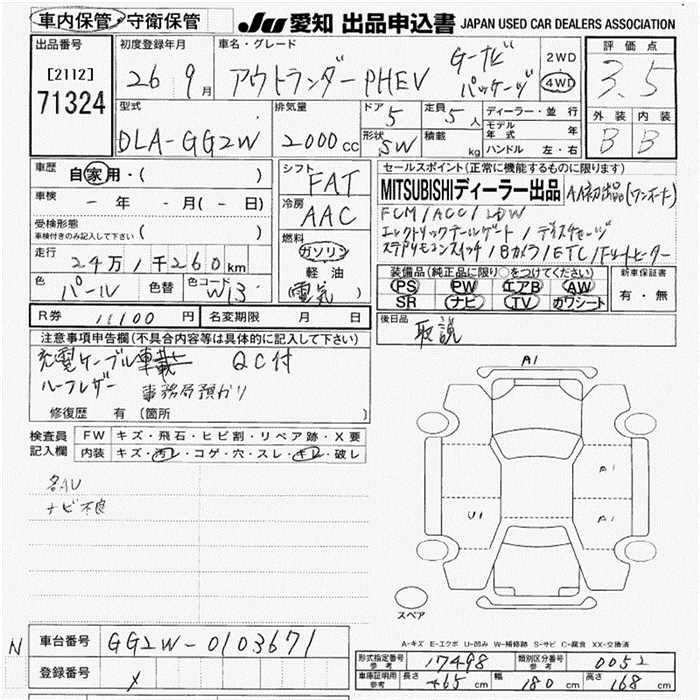 車内保管・守衛保管 JU 愛知 出品申込書 JAPAN USED CAR DEALERS ASSOCIATION
出品番号 初度登録年月 車名・グレード 評価点
[2112] 26 9月 アウトランダーPHEV Gナビ パッケージ 2WD 4WD 3.5
71324
型式 排気量 ドア 5 定員 5人 ディーラー・並行 外装 内装
DLA-GG2W 2000cc 形状 SW 積載 kg モデル年式 年 B B
ハンドル 左・右
車歴 自家用・( )
シフト FAT
セールスポイント(正常に機能するものに限ります)
MITSUBISHIディーラー出品 AA初出品(ワンオーナー)
車検 ー年ー月(ー日)
冷房 AAC
FCM/ACC/LDW
受検形態 (車検付きのみ記入して下さい)( )
エレクトリックテールゲート/
ステアリモコンスイッチ/Bカメラ/ETC/
走行 24万1千260km
燃料 ガソリン 軽油 (電気)
色 パール 色替 色コード W13
装備品(純正品に限り○をつけてください) 新車保証書
PS PW エアB AW 有・無
SR ナビ TV カワシート
R券 11100円 名変期限 月 日
後日品 取説
注意事項申告欄(不具合内容等は具体的に記入して下さい)
充電ケーブル車載 QC付
ハーフレザー 事務局預かり
修復歴 有 (箇所 )
検査員記入欄 FW キズ・飛石・ヒビ割・リペア跡・X要
内装 キズ・汚レ・コゲ・穴・スレ・キレ・破レ
ナビ不良
A1
A1
U1 A1
スペア
A-キズ E-エクボ U-凹み W-補修跡 S-サビ C-腐食 XX-交換済
N 車台番号 GG2W-0103671
登録番号 X
形式指定番号 参考 17498 類別区分番号 参考 0052
車庫証明用 参考 長さ 465cm 幅 180cm 高さ 168cm